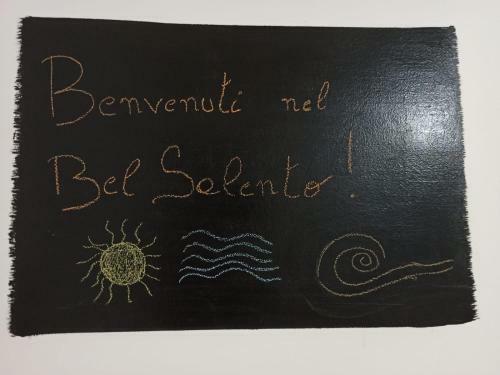 Benvenuti nel
Bel Salento!